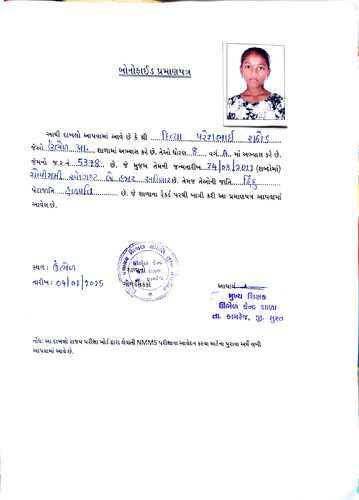 બોનોફાઈડ પ્રમાણપત્ર
આથી દાખલો આપવામાં આવે છે કે શ્રી દિવ્યા પરેશભાઈ રાઠોડ
જેઓ ઉંભેળ પ્રા. શાળામાં અભ્યાસ કરે છે. તેઓ ધોરણ 8 વર્ગ માં અભ્યાસ કરે છે.
જેમનો જ.ર.નં 5378 છે. જે મુજબ તેમની જન્મતારીખ 24/08/2011 (શબ્દોમાં)
ચોવીસમી ઓગષ્ટ બે હજાર અગિયાર છે. તેમજ તેઓની જાતિ હિંદુ
પેટાજાતિ હળપતિ છે. જે શાળાના રેકર્ડ પરથી ખાત્રી કરી આ પ્રમાણપત્ર આપવામાં
આવેલ છે.
સ્થળ: ઉંભેળ
તારીખ:
ગોળ સિક્કો
આચાર્ય
મુખ્ય શિક્ષક
ઊંભેળ કેન્દ્ર શાળા
તા. કામરેજ, જી. સુરત
નોંધ: આ દાખલો રાજ્ય પરીક્ષા બોર્ડ દ્વારા લેવાતી NMMS પરીક્ષાના આવેદન કરવા માટેના પુરાવા અર્થે લખી
આપવામાં આવે છે.